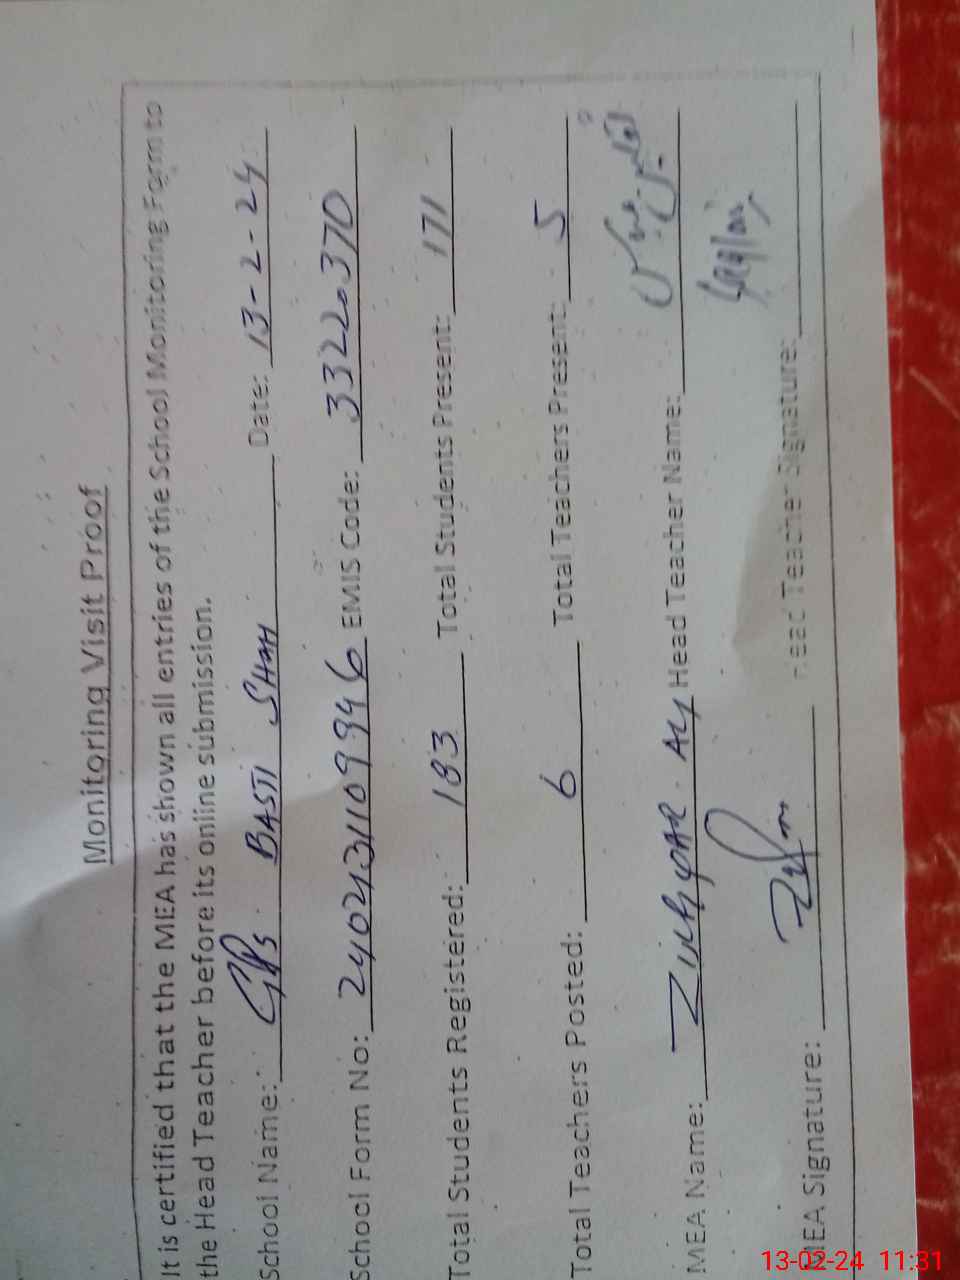 Monitoring Visit Proof
It is certified that the MEA has shown all entries of the School Monitoring Form to
the Head Teacher before its online submission.
School Name: GPS BASTI SHAH Date: 13-2-24
School Form No: 2402131109946 EMIS Code: 33220370
Total Students Registered: 183 Total Students Present: 171
Total Teachers Posted: 6 Total Teachers Present: 5
MEA Name: Zulfiqar Ali Head Teacher Name:
MEA Signature: Head Teacher Signature:
13-02-24 11:31